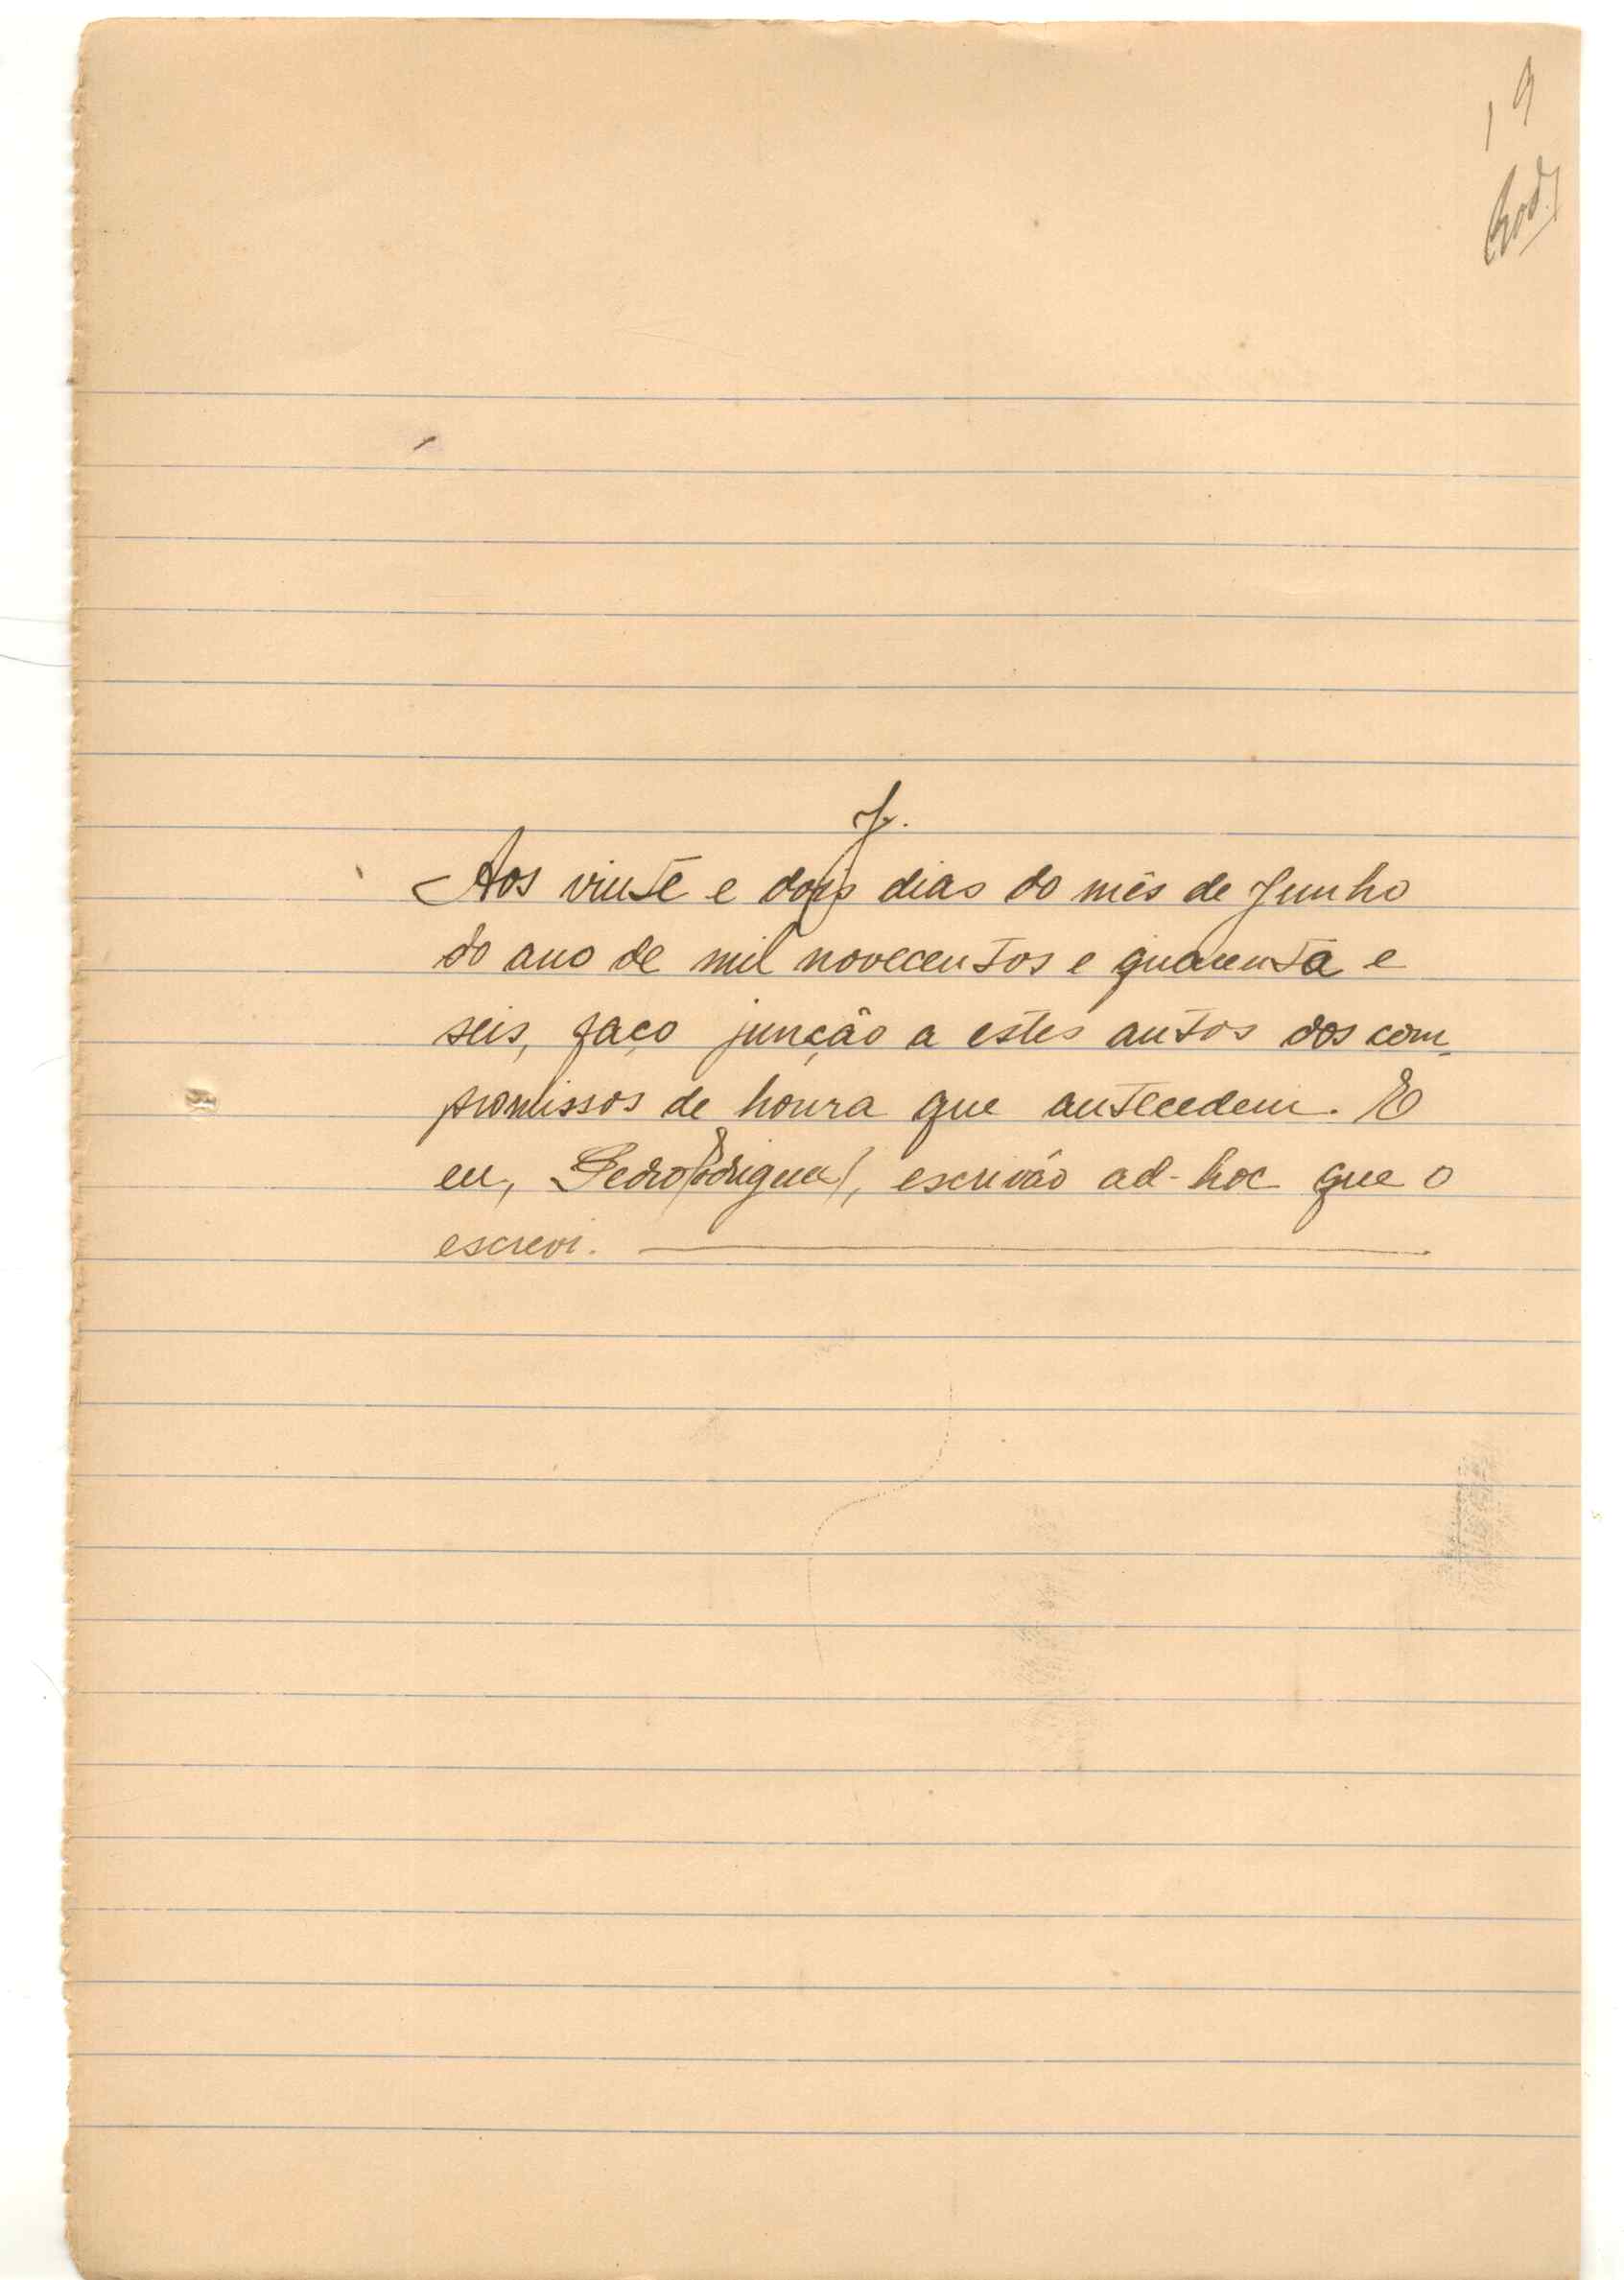 19
Rod.
J.
Aos vinte e dois dias do mês de Junho
do ano de mil novecentos e quarenta e
seis, faço junção a estes autos dos com-
promissos de honra que antecedem. E
eu, Pedro Rodrigues, escrivão ad-hoc que o
escrevi.